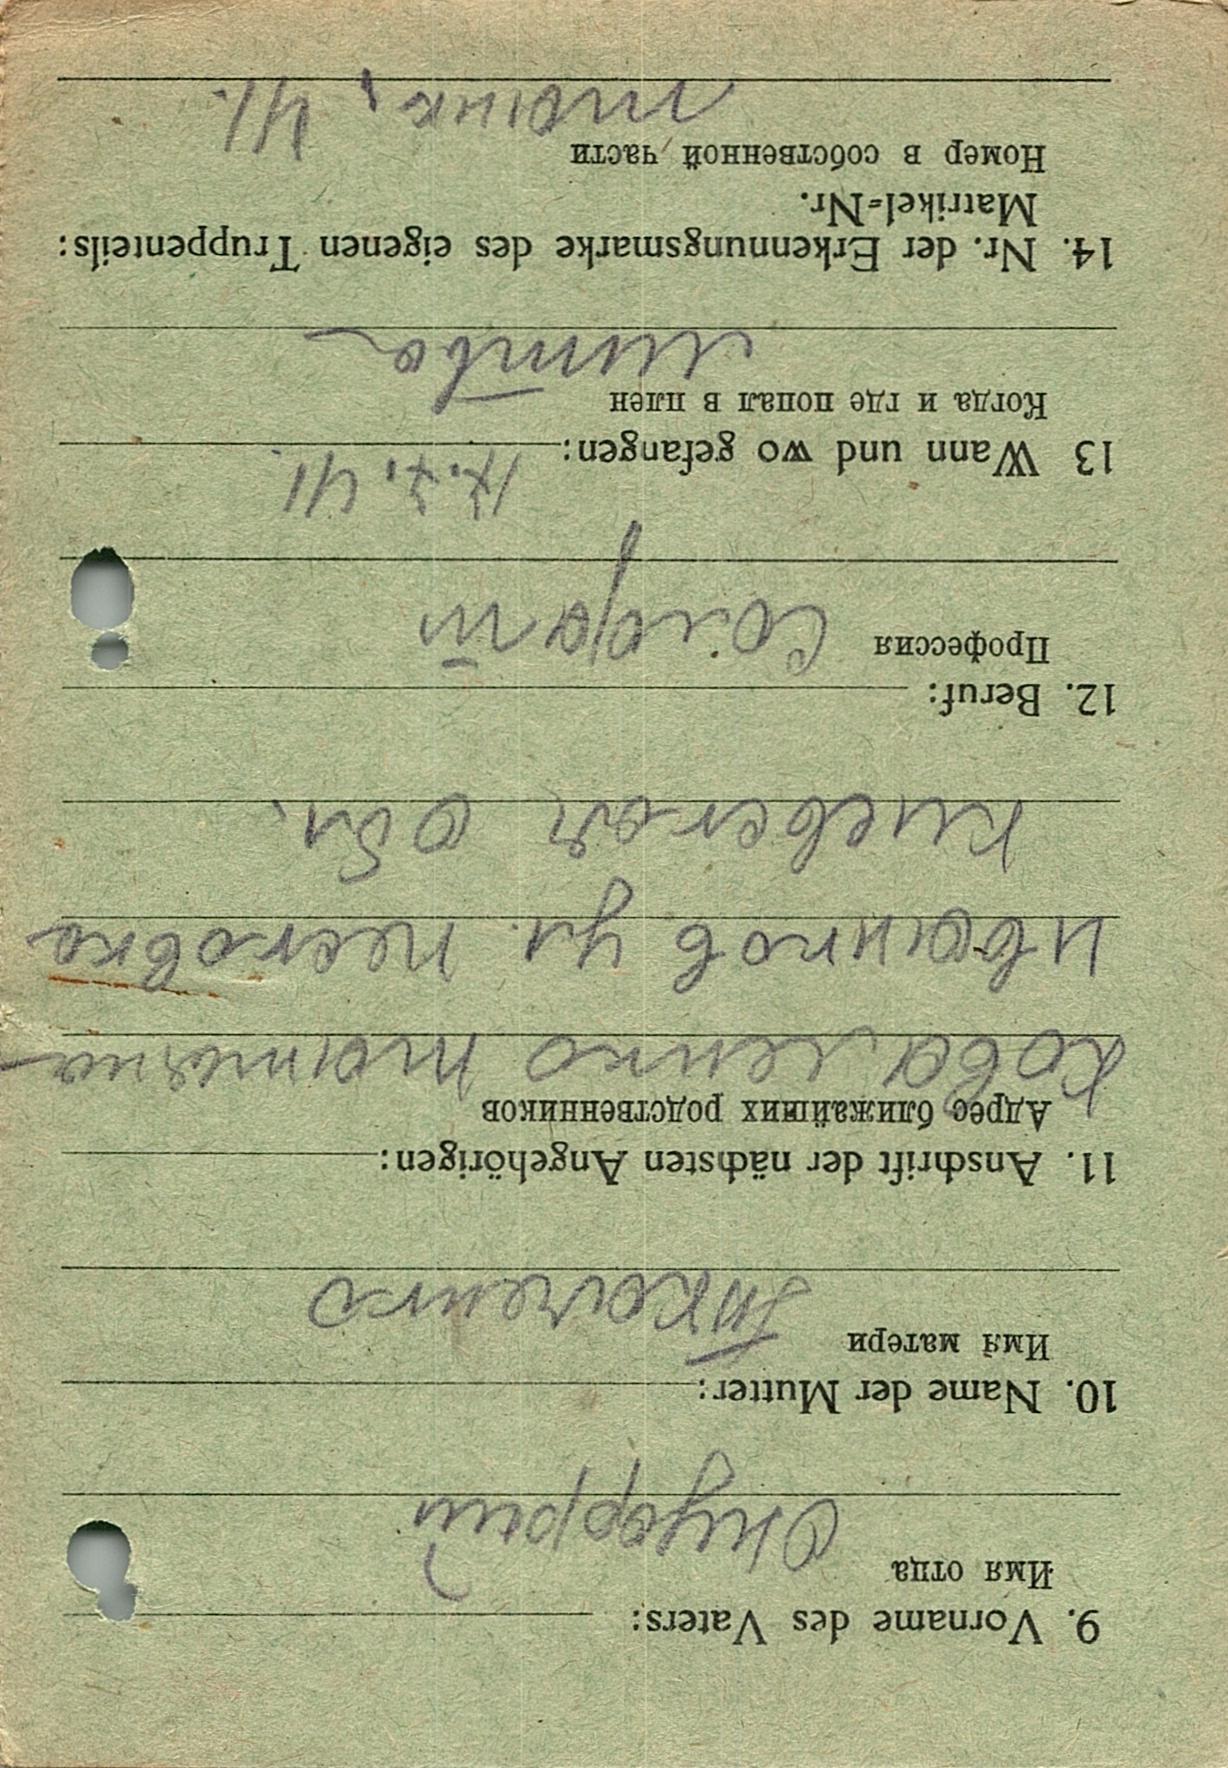 9. Vorname des Vaters:
Имя отца
Онуфрий
10. Name der Mutter:
Имя матери
Ткаченко
11. Anschrift der nächsten Angehörigen:
Адрес ближайших родственников
Коваленко
Иванков ул. Песковка
Киевская обл.
12. Beruf:
Профессия Солдат
13 Wann und wo gefangen: 17.7.41.
Когда и где попал в плен
Литва
14. Nr. der Erkennungsmarke des eigenen Truppenteils:
Matrikel=Nr.
Номер в собственной части
танк, 41.